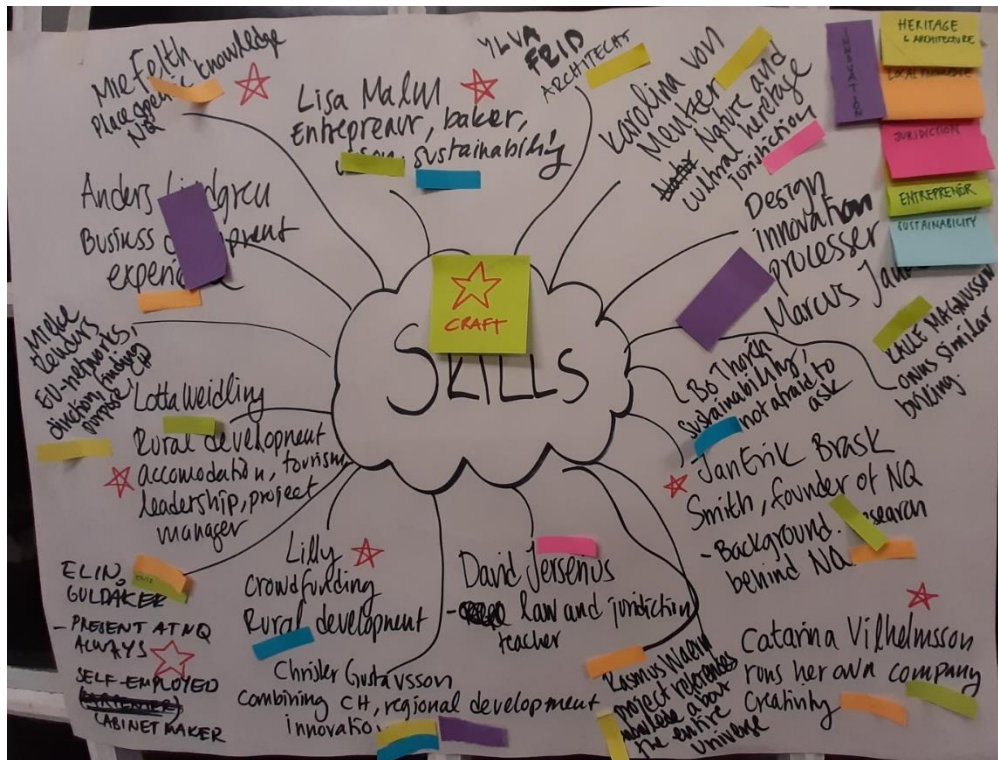 Mie Felth
Place specific knowledge
NQ
Lisa Malm
Entrepreneur, baker,
sustainability
YLVA
FRID
ARCHITECT
Karolina von
Mentzer
Nature and
cultural heretage
juristiction
INNOVATION
HERITAGE
& ARCHITECTURE
LOCAL KNOWLEDGE
JURIDICTION
ENTREPRENÖR
SUSTAINABILITY
Anders Lindgren
Business development
experience
Design
innovation
processer
Marcus
KALLE MAGNUSSON
owns similar
building.
CRAFT
SKILLS
Mieke
EU-networks,
direction, finding
purpose, CH
Lotta Weidling
Rural development
accomodation, tourism,
leadership, project
manager
Bo Thorén
sustainability,
not afraid to
ask
JanErik Brask
Smith, founder of NQ
- Background. Research
behind NQ
ELIN
GULDAKER
- PRESENT AT NQ
ALWAYS
SELF-EMPLOYED
CABINET MAKER
Lilly
Crowdfunding
Rural development
David Jersenus
- law and juridiction
teacher
Christer Gustavsson
Combining CH, regional development
innovation
Rasmus Waern
project references
about
the entire
universe
Catarina Vilhelmsson
runs her own company
Creativity